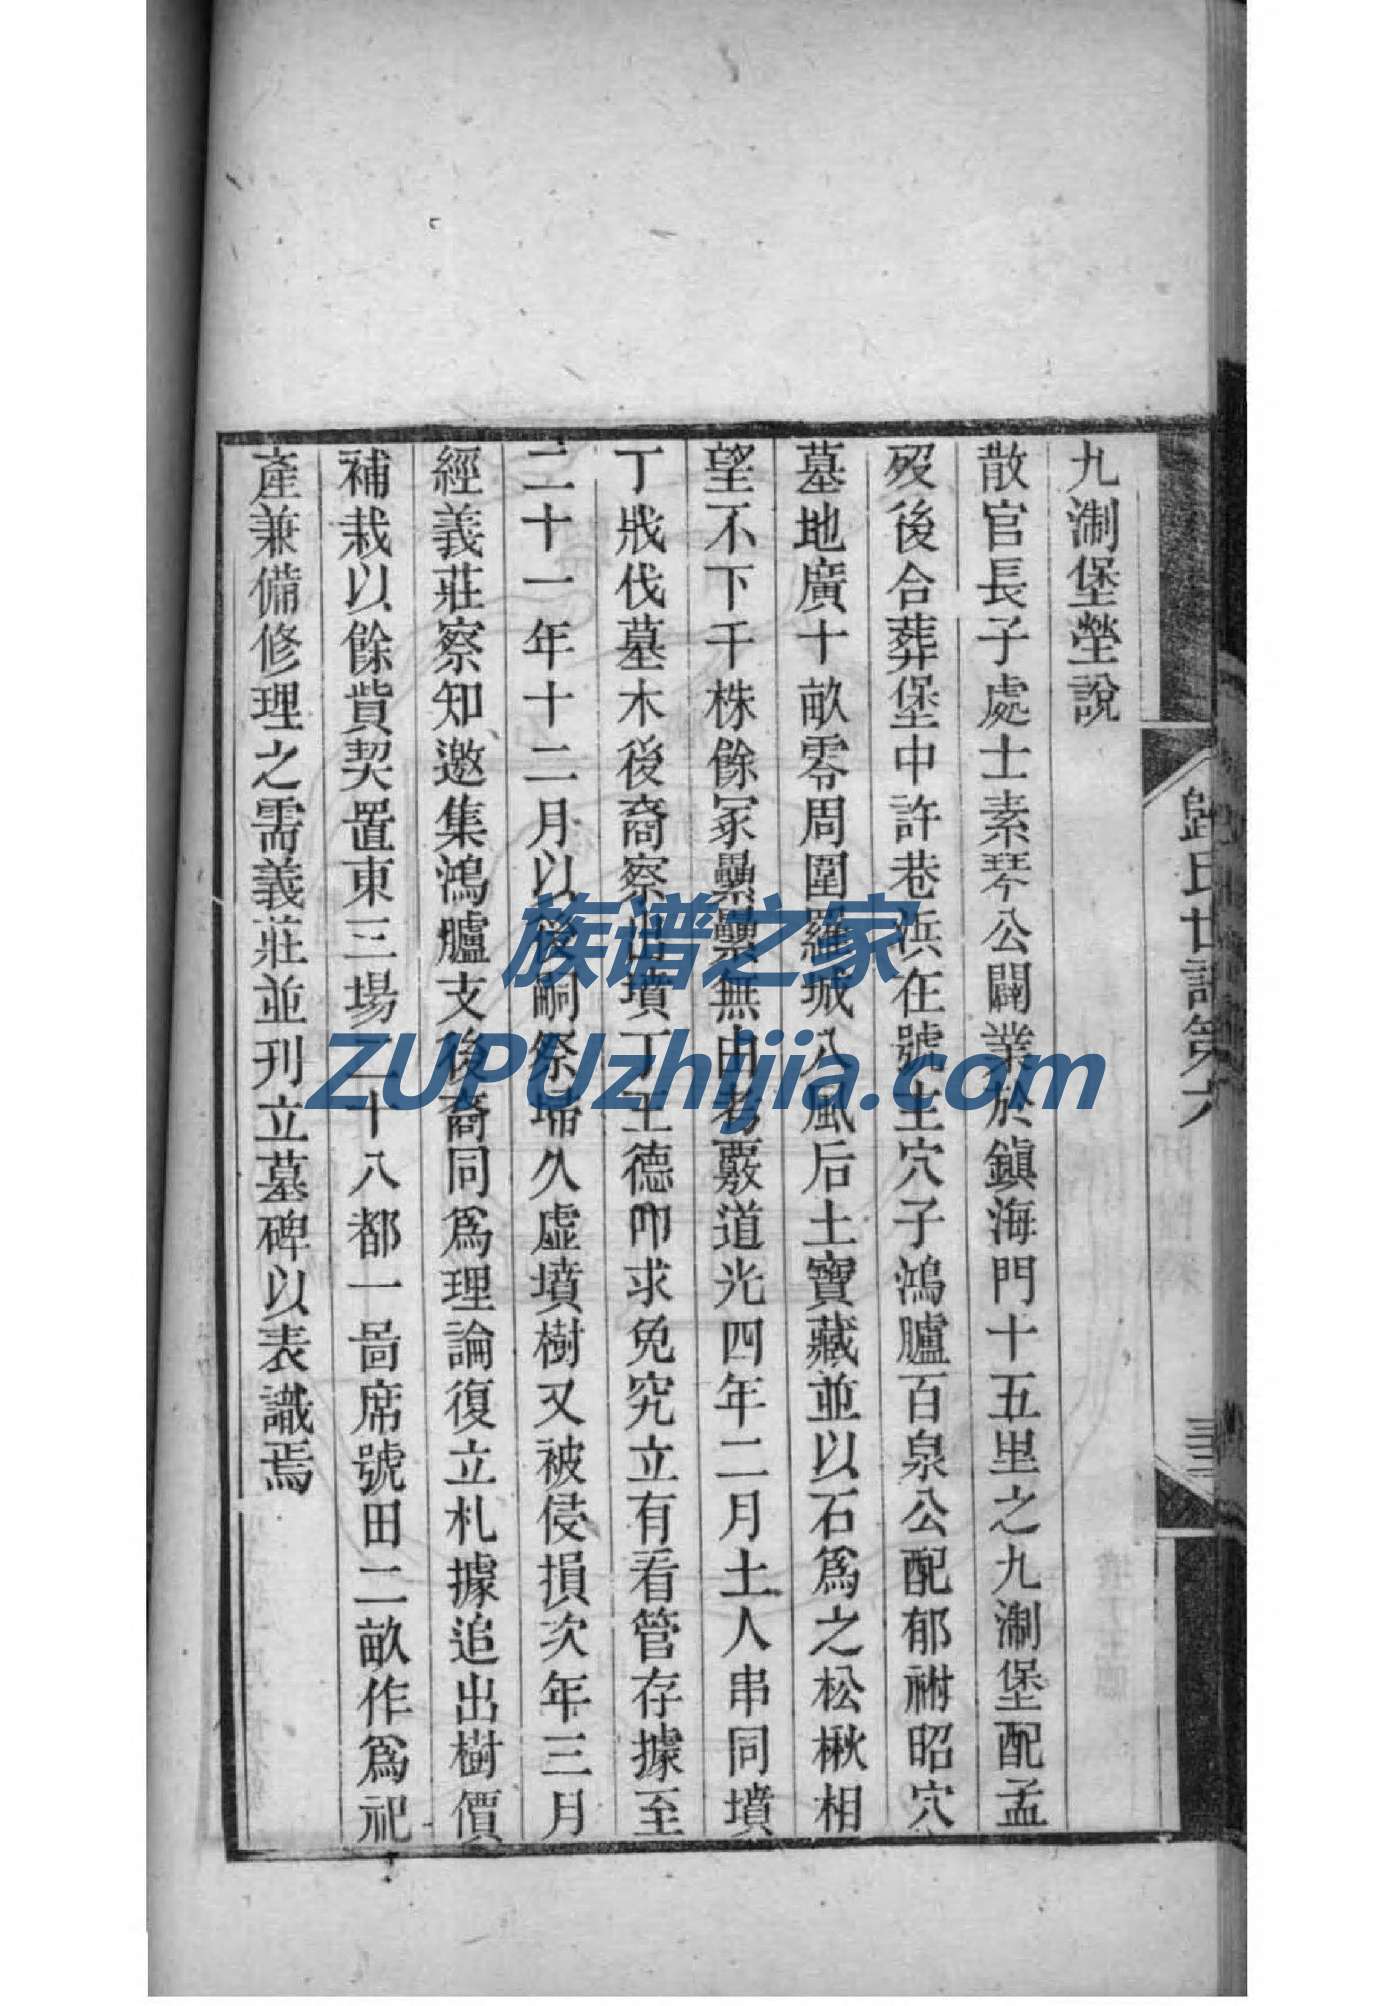 九淛堡塋說
散官長子處士素琴公闢業於鎭海門十五里之九淛堡配孟
歿後合葬堡中許巷浜在號主穴子鴻臚百泉公配郁祔昭穴
墓地廣十畝零周圍羅城八風后土寶藏並以石爲之松楸相
望不下千株餘冢纍纍無由考覈道光四年二月土人串同墳
丁戕伐墓木後裔察出墳丁王德叩求免究立有看管存據至
二十一年十二月以後嗣祭埽久虛墳樹又被侵損次年三月
經義莊察知邀集鴻臚支後裔同爲理論復立札據追出樹價
補栽以餘貲契置東三場二十八都一啚席號田二畝作爲祀
產兼備修理之需義莊並刊立墓碑以表識焉
歸氏世譜第六
族谱之家
ZUPUzhijia.com